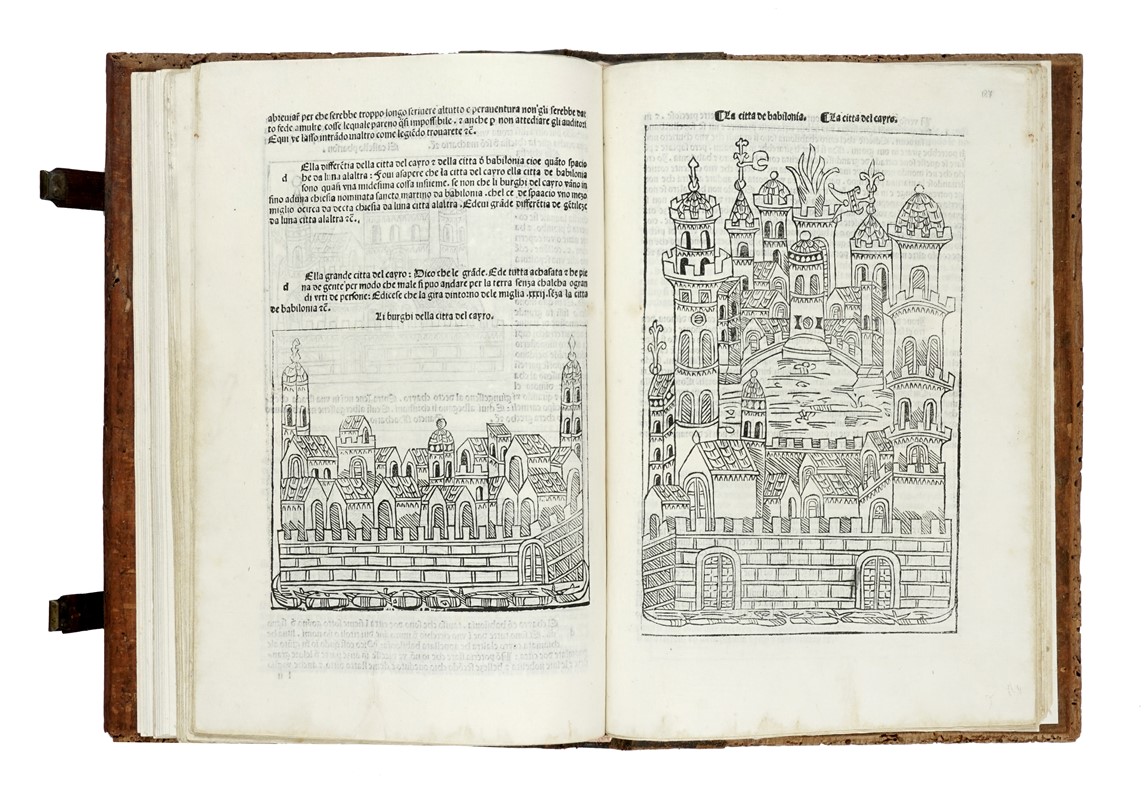 abreuiar per che serebbe troppo longo scriuere altutto e perauentura non gli serebbe dac
to fede amulte cosse lequale pareno q̃si impossibile. ⁊ anche p non attediare gli auditori
Equi ve lasso intrádo inaltro come legiẽdo trouarete ⁊c̃.
Ella differẽtia della citta del cayro ⁊ della citta d babilonia cioe quãto spacio
d he da luna alaltra: Foui asapere che la citta del cayro ella citta de babilonia
sono quasi vna midesima cossa insieme. se non che li burghi del cayro vano in
fino aduna chiesia nominata sancto martino da babilonia. che ce de spaacio vno mezo
miglio ocirca da decta chiesia da luna citta alaltra. Edeui gráde differẽtia de gẽtileze
da luna citta alaltra ⁊c̃.
Ella grande citta del cayro: Dico che le gráde. Ede tutta achasata ⁊ he pie
d na de gente per modo che male si puo andare per la terra senza chalcha ogran
di vrti de persone: Edicese che la gira dintorno dele miglia .xxxij. sẽza la citta
de babilonia ⁊c̃.
Li burghi della citta del cayro.
¶La citta de babilonia. ¶La citta del cayro.